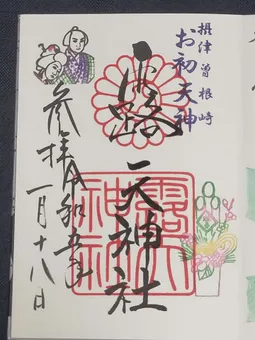 摂津曾根崎
お初天神
露天神社
露天神社
参拝令和五年
一月十八日